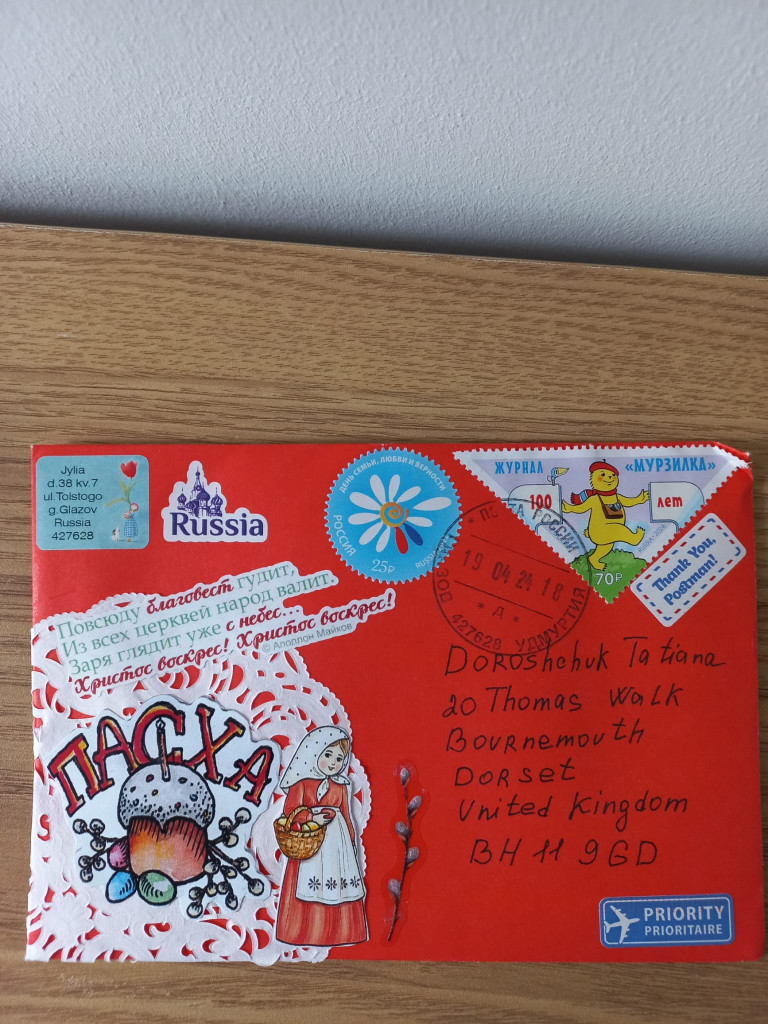 Jylia
d.38 kv.7
ul.Tolstogo
g.Glazov
Russia
427628
Russia
ДЕНЬ СЕМЬИ, ЛЮБВИ И ВЕРНОСТИ
РОССИЯ
25р
ЖУРНАЛ «МУРЗИЛКА»
100 лет
70р
Thank You,
Postman!
ПОЧТА РОССИИ
19 04 24 18
* Д *
427628 УДМУРТИЯ
Повсюду благовест гудит,
Из всех церквей народ валит.
Заря глядит уже с небес...
Христос воскрес! Христос воскрес!
© Аполлон Майков
ПАСХА
Doroshchuk Tatiana
20 Thomas Walk
Bournemouth
Dorset
United Kingdom
BH 11 9GD
PRIORITY
PRIORITAIRE